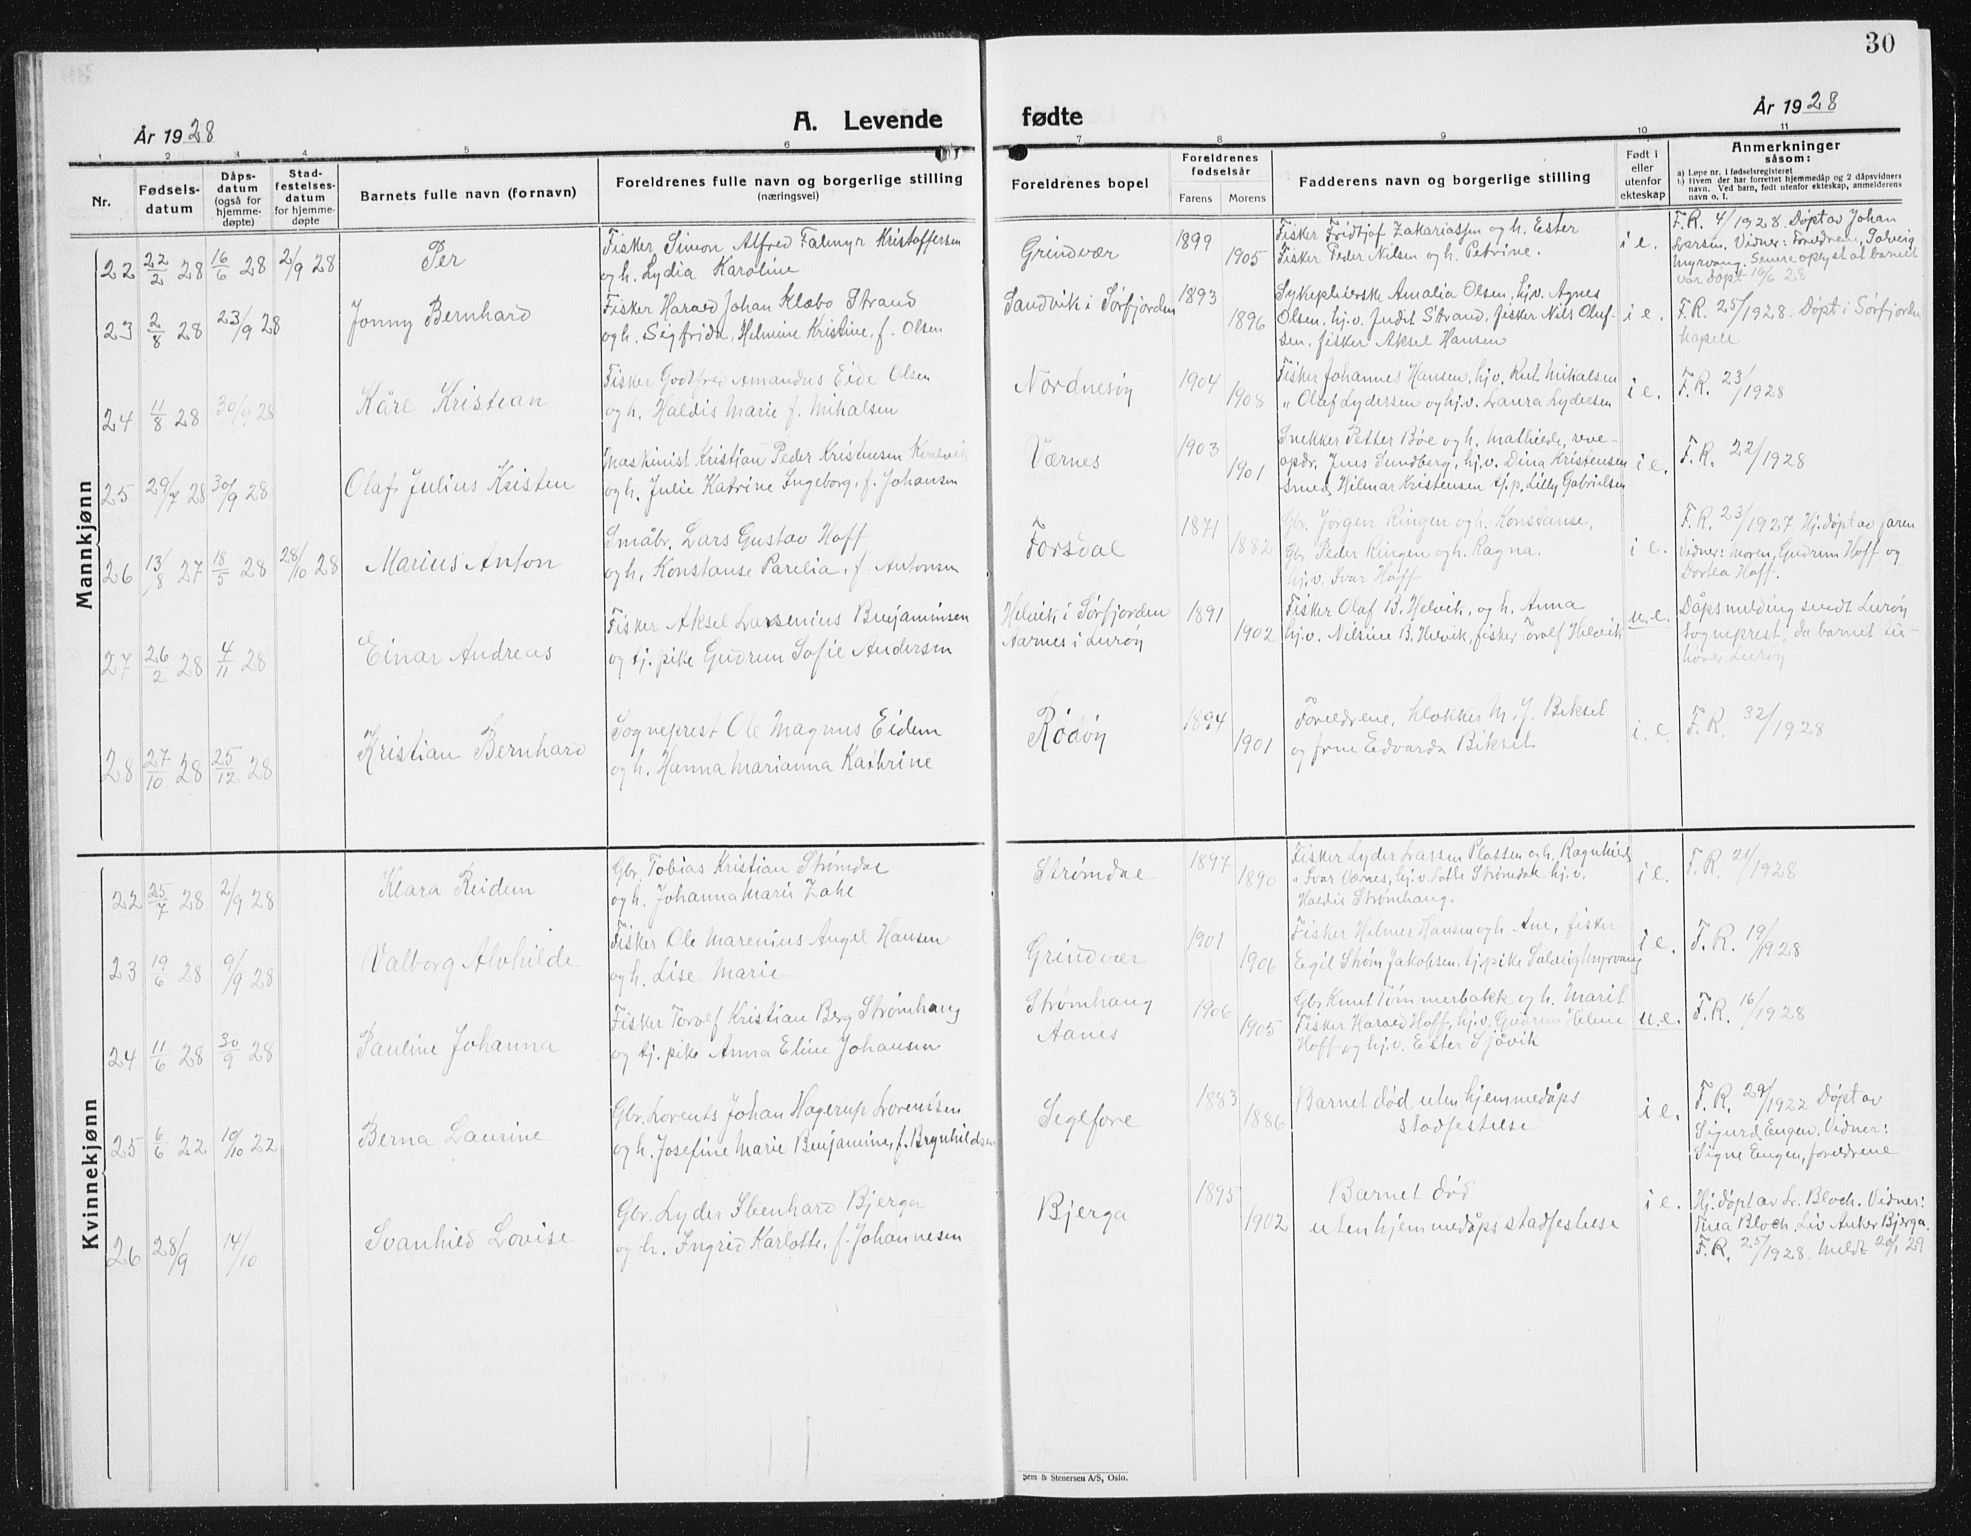 30
År 1928
A. Levende fødte
År 1928
1 2 3 4 5 6 7 8 9 10 11
Nr.
Fødsels-
datum
Dåps-
datum
(også for
hjemme-
døpte)
Stad-
festelses-
datum
for hjemme-
døpte
Barnets fulle navn (fornavn)
Foreldrenes fulle navn og borgerlige stilling
(næringsvei)
Foreldrenes bopel
Foreldrenes
fødselsår
Farens Morens
Fadderens navn og borgerlige stilling
Født i
eller
utenfor
ekteskap
Anmerkninger
såsom:
a) Løpe nr. i fødselsregisteret
b) Hvem der har forrettet hjemmedåp og 2 dåpsvidners
navn. Ved barn, født utenfor ekteskap, anmelderens
navn o. l.
Mannkjønn
22 22/2 28 16/6 28 2/9 28 Per
Fisker Simon Alfred Falmyr Kristoffersen
og h. Lydia Karoline
Grindvær 1899 1905
Fisker Fridtjof Zakariassen og h. Ester
Fisker Peder Nilsen og h. Petrine.
i e.
F.R. 4/1928. Døpt av Johan
Larsen. Vidner: Foreldrene, Solveig
Myrvang. Senere oplyst at barnet
var døpt 16/6 28
23 2/8 28 23/9 28 Jonny Bernhard
Fisker Harald Johan Klæbo Strand
og h. Sigfrida, Helmine Kristine, f. Olsen
Sandvik i Sørfjorden 1893 1896
Sykepleierske Amalia Olsen, hj.v. Agnes
Olsen, hj.v. Judit Strand, fisker Nils Oluf-
sen, fisker Aksel Hansen
i e.
F.R. 25/1928. Døpt i Sørfjorden
kapell
24 11/8 28 30/9 28 Kåre Kristian
Fisker Godtfred Amandus Eide Olsen
og h. Haldis Marie f. Mikalsen
Nordnesøy 1904 1908
Fisker Johannes Hansen, hj.v. Rut Mikalsen
" Olaf Lydersen og hj.v. Laura Lydersen
i e.
F.R. 23/1928
25 29/7 28 30/9 28 Olaf Julius Kristen
Maskinist Kristian Peder Kristensen Kvalvik
og h. Julie Katrine Ingeborg, f. Johansen
Værnes 1903 1901
Snekker Petter Bøe og h. Mathilde, reve-
opdr. Jens Sundberg, hj.v. Dina Kristensen
smed, Hilmar Kristensen tj.p. Lilly Gabrielsen
i e.
F.R. 22/1928
26 13/8 27 18/5 28 28/10 28 Marius Anton
Småbr. Lars Gustav Hoff
og h. Konstanse Parelia, f. Antonsen
Forsdal 1871 1882
Gbr. Jørgen Ringen og h. Konstanse,
Gbr. Peder Ringen og h. Ragna.
hj.v. Svar Hoff
i e.
F.R. 23/1927. Hj. døpt av faren
Vidner: moren, Gudrun Hoff og
Dortea Hoff.
27 26/2 28 4/11 28 Einar Andreas
Fisker Aksel Larsenius Benjaminsen
og tj. pike Gudrun Sofie Andersen
Helvik i Sørfjorden
Aarnes i Lurøy
1891 1902
Fisker Olaf B. Helvik, og h. Anna
hj.v. Nilsine B. Helvik, fisker Torolf Helvik
u.e.
Dåpsmelding sendt Lurøy
sogneprest, da barnet til-
hører Lurøy
28 27/10 28 25/12 28 Kristian Bernhard
Sogneprest Ole Magnus Eidem
og h. Hanna Marianna Kathrine
Rødøy 1894 1901
Foreldrene, klokker M. J. Biksel
og frue Edvarda Biksel
i. e.
F.R. 32/1928
Kvinnekjønn
22 25/7 28 2/9 28 Klara Reidun
Gbr. Tobias Kristian Strømdal
og h. Johanna Marie Zahl
Strømdal 1897 1890
Fisker Lyder Larssen Plassen og h. Ragnhild
" Svar Værnes, hj.v. Strømdal hj.v.
Haldis Strømhaug.
i e.
F.R. 21/1928
23 19/6 28 9/9 28 Valborg Alvhilde
Fisker Ole Marenius Angel Hansen
og h. Lise Marie
Grindvær 1901 1906
Fisker Helmer Hansen og h. Ane, fisker
Eegil Strøm Jakobsen, tj.pike Solveig Myrvang
i e.
F.R. 19/1928
24 11/6 28 30/9 28 Pauline Johanna
Fisker Torolf Kristian Berg Strømhaug
og tj. pike Anna Eline Johansen
Strømhaug
Aanes
1906 1905
Gbr. Knut Tømmerbakk og h. Marit
Fisker Harald Hoff, hj.v. Gudrun Helene
Hoff og hj.v. Ester Sjøvik
u.e.
F.R. 16/1928
25 6/6 22 10/10 22 Berna Laurine
Gbr. Lorents Johan Hagerup Lorentsen
og h. Josefine Marie Benjamine, f. Brynhildsen
Seglfore 1883 1886
Barnet død uten hjemmedåps
stadfestelse
i e.
F.R. 29/1922 Døpt av
Sigurd Engen. Vidner:
Signe Engen, foreldrene
26 28/9 14/10 Svanhild Lovise
Gbr. Lyder Ibenhard Bjerga
og h. Ingrid Karlotte, f. Johannesen
Bjerga 1895 1902
Barnet død
uten hjemmedåps stadfestelse
i e.
Hj. døpt av Lr. Bloch. Vidner:
Thea Bloch, Liv Anker Bjerga.
F.R. 25/1928. Meldt 20/1 29
Sem & Stenersen A/S, Oslo.